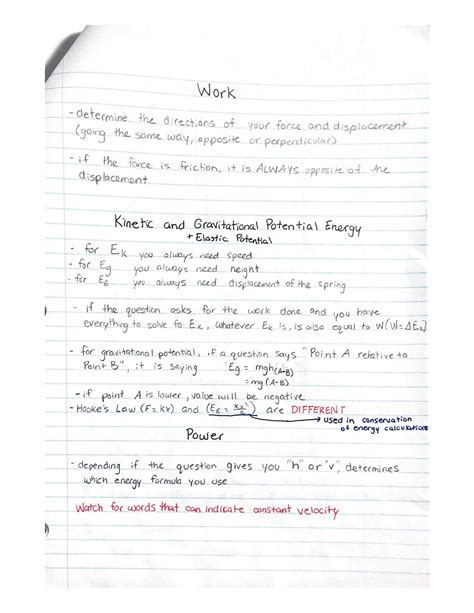 Work
- determine the directions of your force and displacement
(going the same way, opposite or perpendicular)
- if the force is friction, it is ALWAYS opposite of the
displacement
Kinetic and Gravitational Potential Energy
+ Elastic Potential
- for Ek you always need speed
- for Eg you always need height
- for EE you always need displacement of the spring
- if the question asks for the work done and you have
everything to solve fo Ek, whatever Ek is, is also equal to W(W=ΔEk)
- for gravitational potential, if a question says "Point A relative to
Point B", it is saying Eg = mgh(A-B)
= mg(A-B)
- if point A is lower, value will be negative
- Hooke's Law (F= kx) and (EE = kx²/2) are DIFFERENT
used in conservation
of energy calculations
Power
- depending if the question gives you "h" or "v", determines
which energy formula you use
Watch for words that can indicate constant velocity